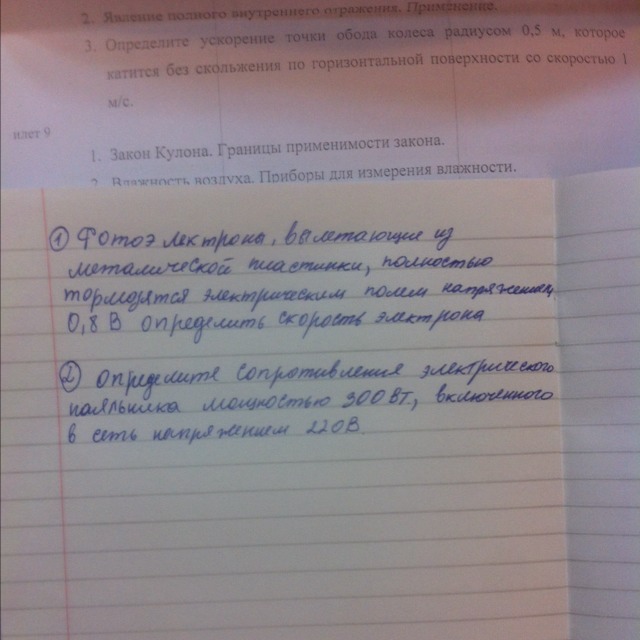 2. Явление полного внутреннего отражения. Применение.
3. Определите ускорение точки обода колеса радиусом 0,5 м, которое
катится без скольжения по горизонтальной поверхности со скоростью 1
м/с.
илет 9
1. Закон Кулона. Границы применимости закона.
2. Влажность воздуха. Приборы для измерения влажности.
① Фотоэлектроны, вылетающие из
металической пластинки, полностью
тормозятся электрическим полем напряжением
0,8 В определить скорость электрона
② Определите сопротивление электрического
паяльника мощностью 300 ВТ, включенного
в сеть напряжением 220 В.